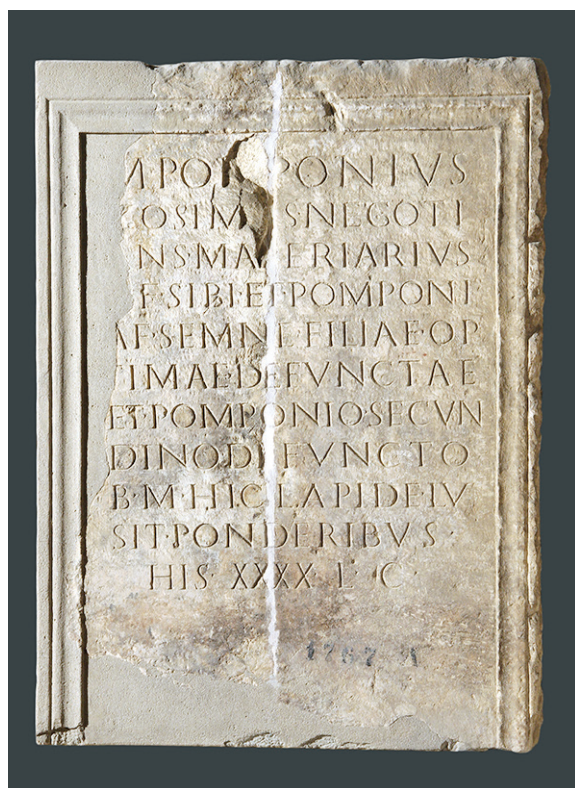 M·POMPONIVS
OSIM SNEGOTI
NSMATERIARIVS
F·SIBI·ET·POMPONI
AE·SEMNE·FILIAE·OP
TIMAE·DEFVNCTAE
ET·POMPONIO·SECVN
DINO·DEFVNCTO
B·M·HIC·LAPIDE·LV
SIT·PONDERIBVS·
HIS·XXXX L·C·